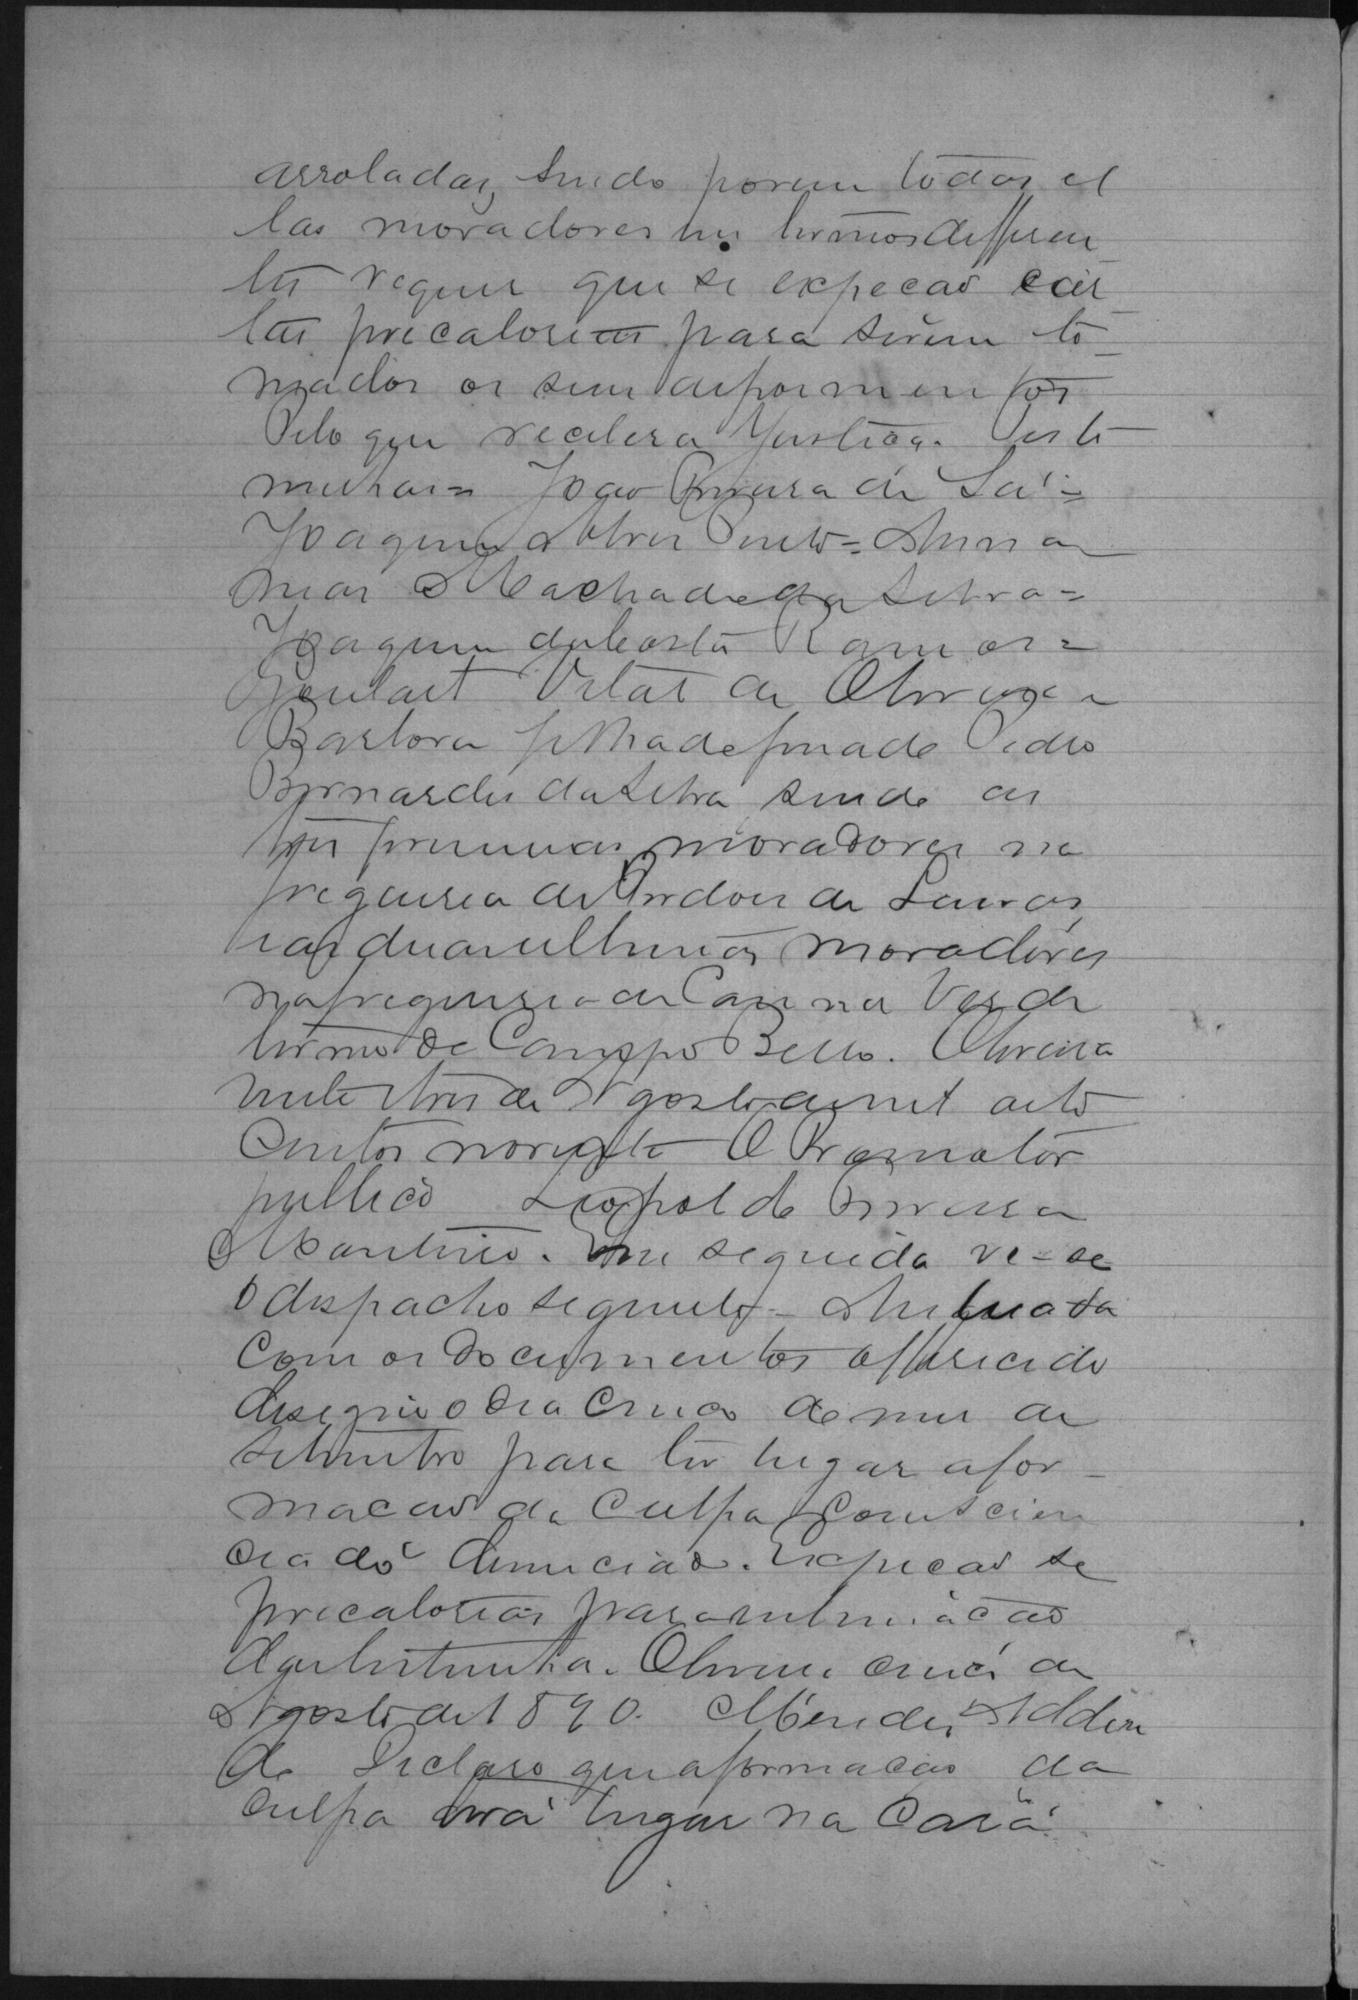 arroladas, sendo porem todas el
las moradores em termos differen
tes requer que se expeção car
tas precatorias para serem to
mados os seus depoimentos
Pelo que recebera Justiça. Teste
munhas = João Pereira de Sá =
Joaquim Alves Pinto =
Machado da Silva =
Joaquim da Costa Ramos =
Goulart Vital de Oliveira
Barbora filha do finado Pedro
Bernardes da Silva sendo as
tres primeiras moradores na
freguesia de Perdões de Lavras,
e as duas ultimas moradores
na freguesia de Canna Verde
termo de Campo Bello. Oliveira
vinte tres de Agosto de mil oito
centos noventa O Promotor
publico Leopoldo Pereira
Monteiro. Em seguida ve-se
o despacho seguinte - Autuada
com os documentos offerecido
designo o dia cinco do mes de
setembro para ter lugar a for-
mação da culpa com scien
cia do denuciado. Expeção se
precatorias para intimação
das testimunha. Oliveira de
Agosto de 1890. Mendes. Adden
do Declaro que a formação da
culpa terá lugar na Casa